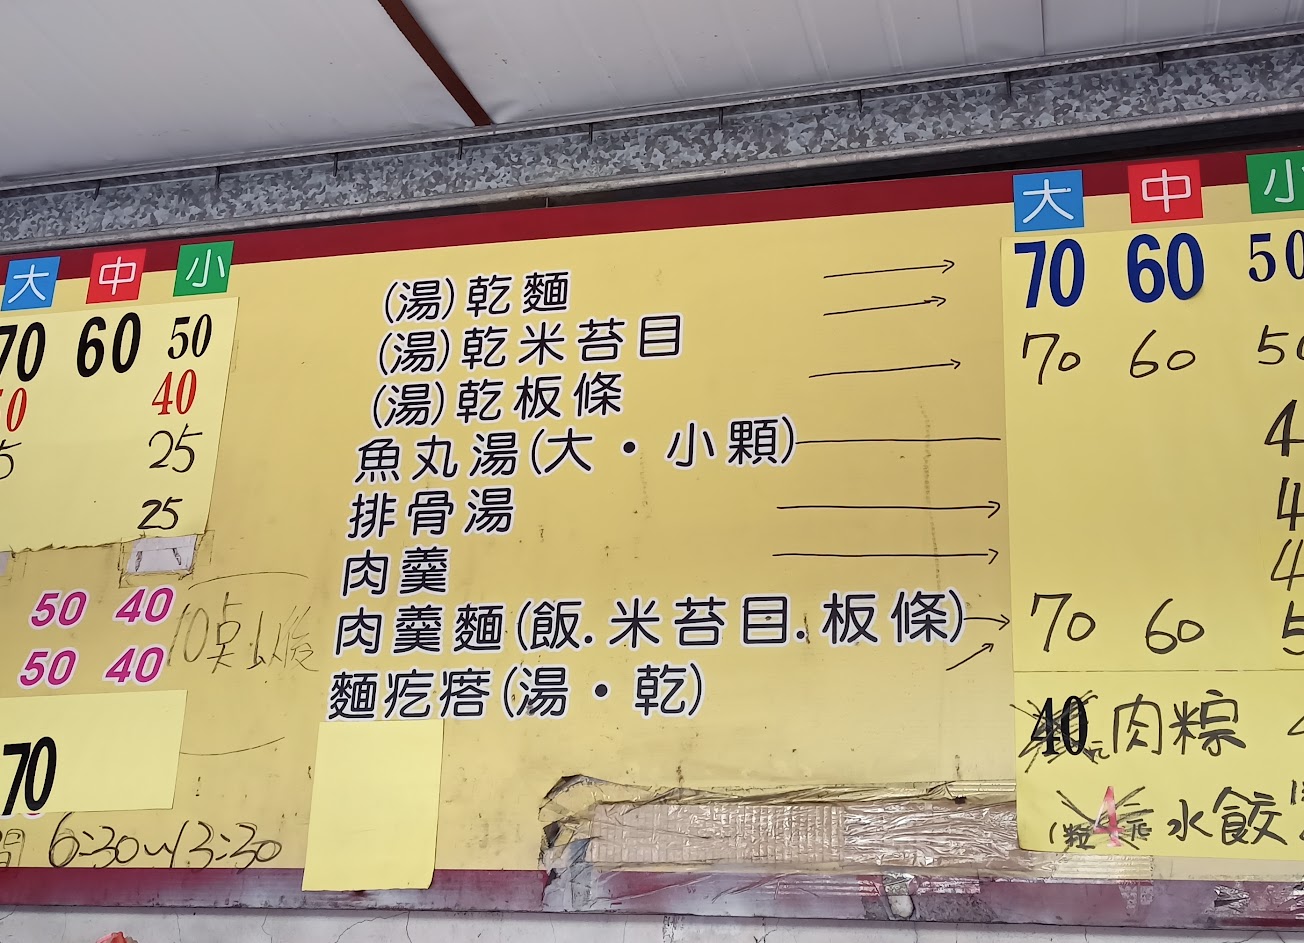 大 中 小
70 60 50
40
25
25
50 40
50 40
10点以後
70
6:30~13:30
(湯)乾麵
(湯)乾米苔目
(湯)乾板條
魚丸湯(大・小顆)
排骨湯
肉羹
肉羹麵(飯.米苔目.板條)
麵疙瘩(湯・乾)
大 中 小
70 60 50
70 60
4
4
4
70 60
40 肉粽
1粒4元 水餃